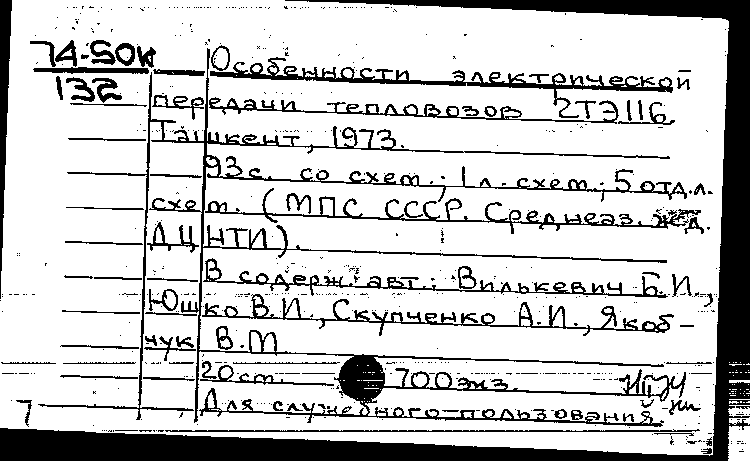 74-50к Особенности электрической
132 передачи тепловозов 2ТЭ116.
Ташкент, 1973.
93с. со схем.; 1 л. схем.; 5 отд.л.
схем. (МПС СССР. Среднеаз. ж.д.
ДЦНТИ).
В содерж. авт.: Вилькевич Б.И.,
Юшко В.И., Скупченко А.И., Якоб-
чук В.М
20см. 700экз.
7 Для служебного пользования.